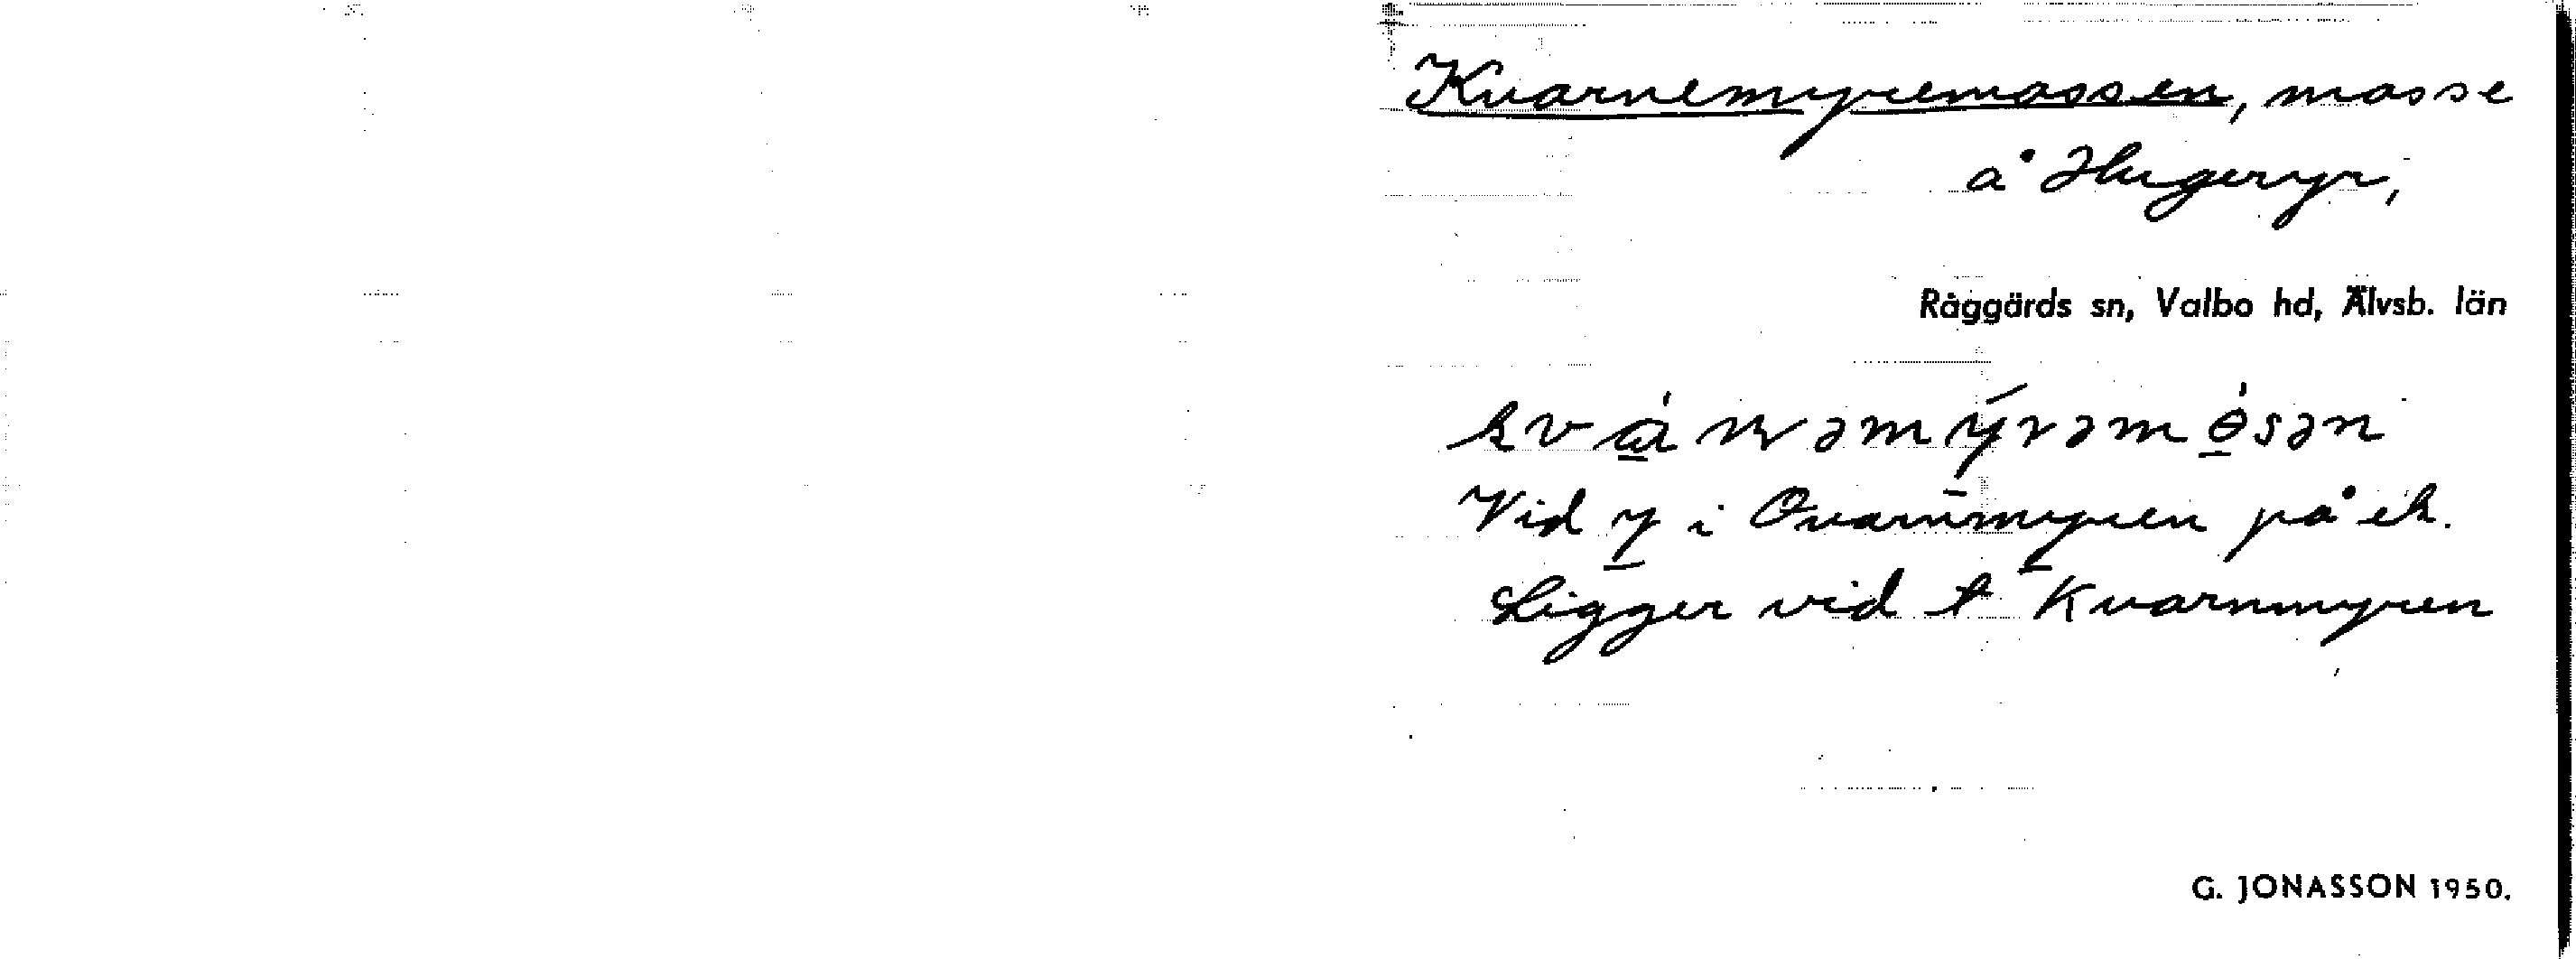 Kvarnemyremossen, mosse
å Hugeryr,
Råggärds sn, Valbo hd, Älvsb. län
Vid y i Qvarnmyren på ek.
Ligger vid t Kvarnmyren
G. JONASSON 1950.